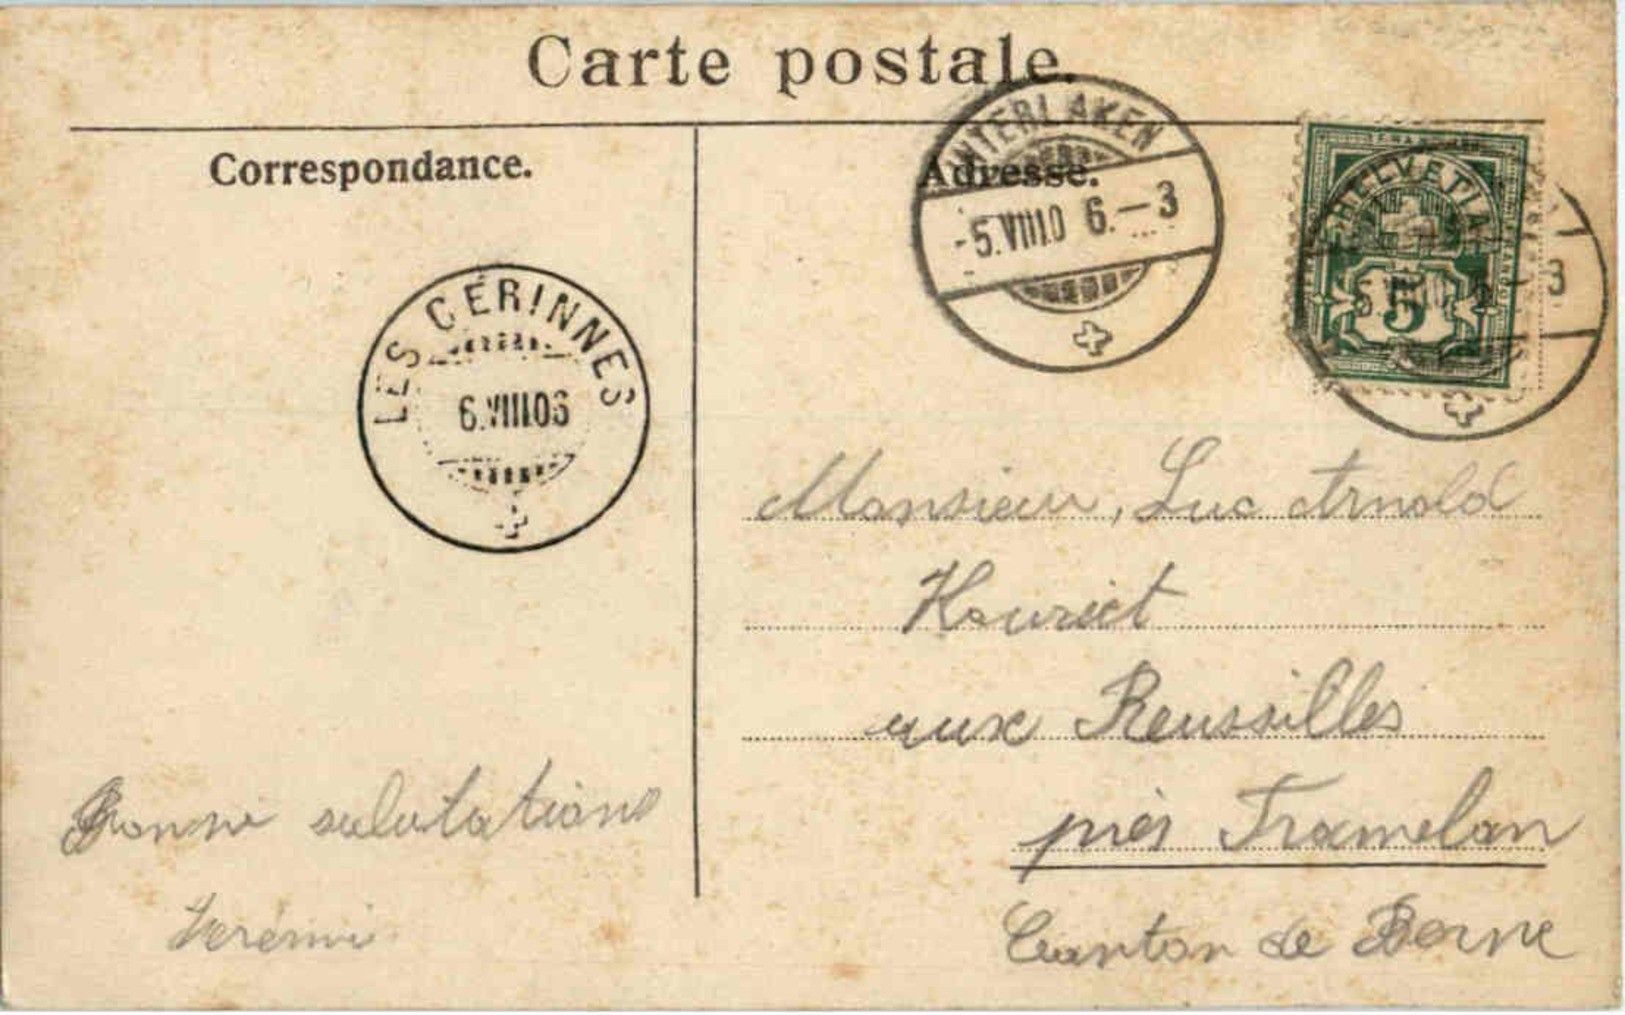 Carte postale.
Correspondance.
Adresse.
INTERLAKEN
-5.VIII.0 6.-3
HELVETIA
5
3
LES CÉRINNES
6.VIII.06
Monsieur, Luc Arnold
Houriet
aux Reussilles
près Tramelan
Canton de Berne
Bonne salutations